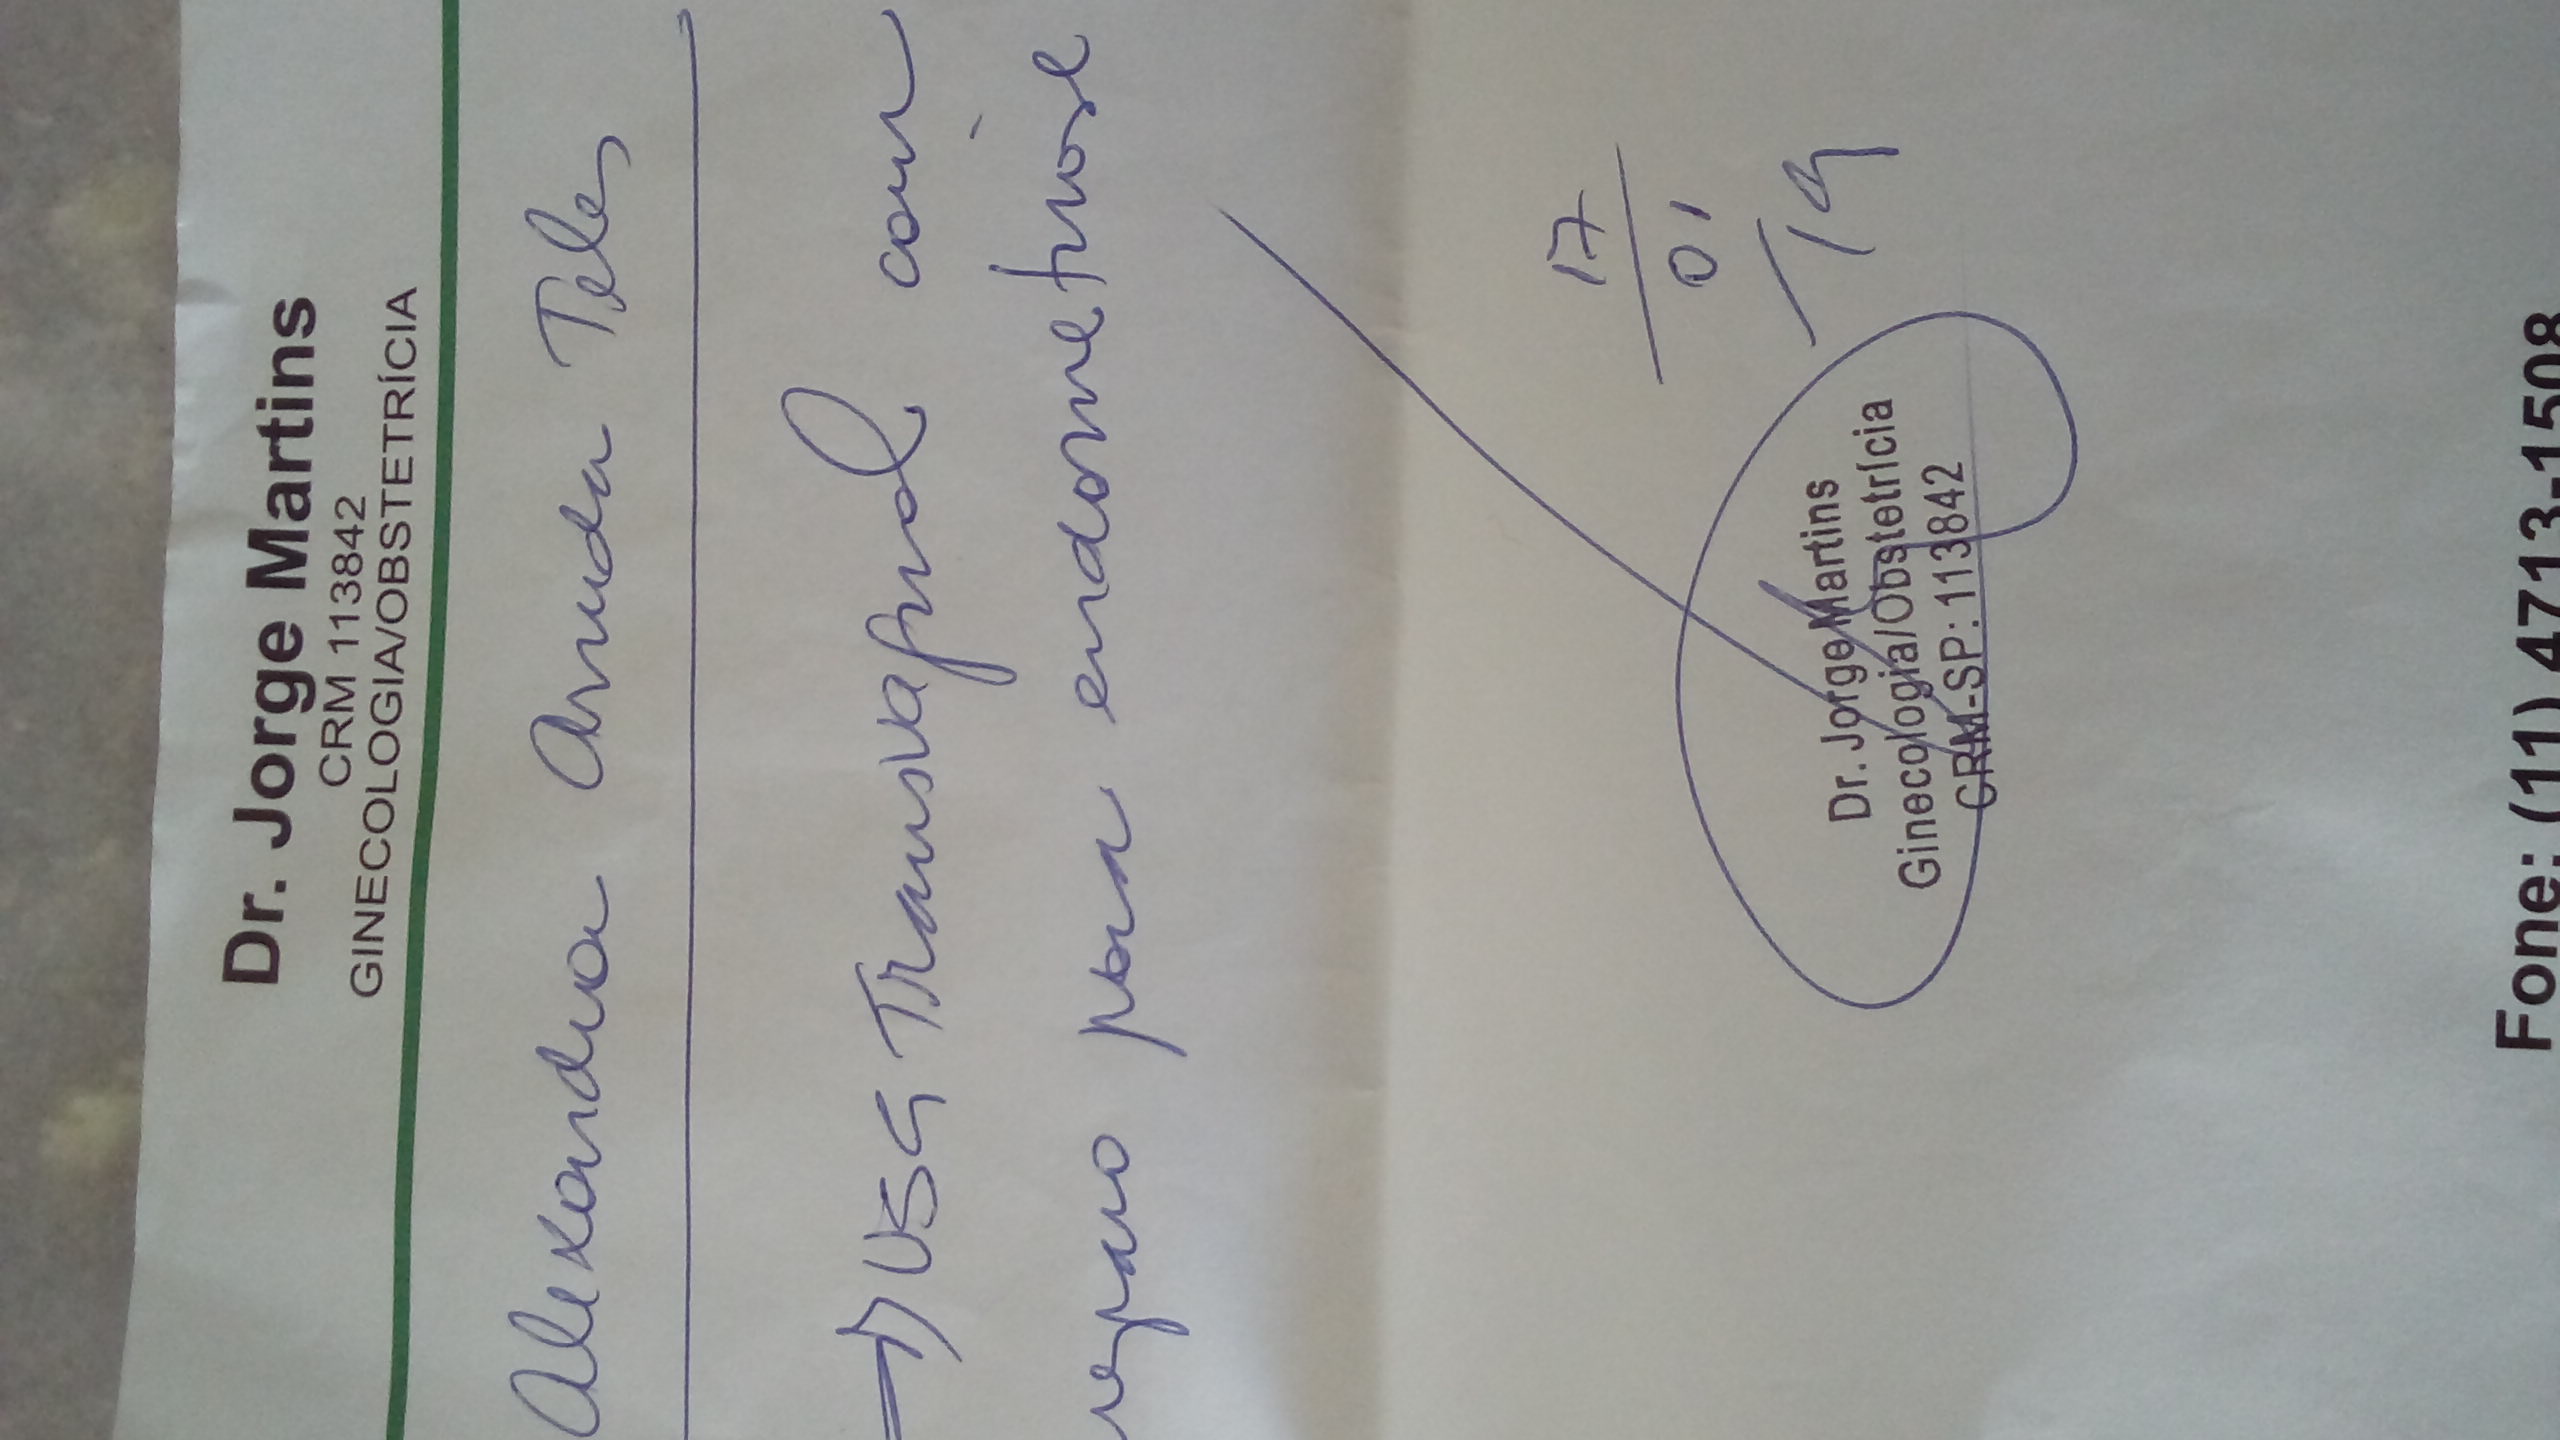 Dr. Jorge Martins
CRM 113842
GINECOLOGIA/OBSTETRÍCIA
Alexandra Arruda Teles
→ USG Transvaginal com
reparo para endometriose
17
01
19
Dr. Jorge Martins
Ginecologia/Obstetrícia
CRM-SP: 113842
Fone: (11) 4713-1508